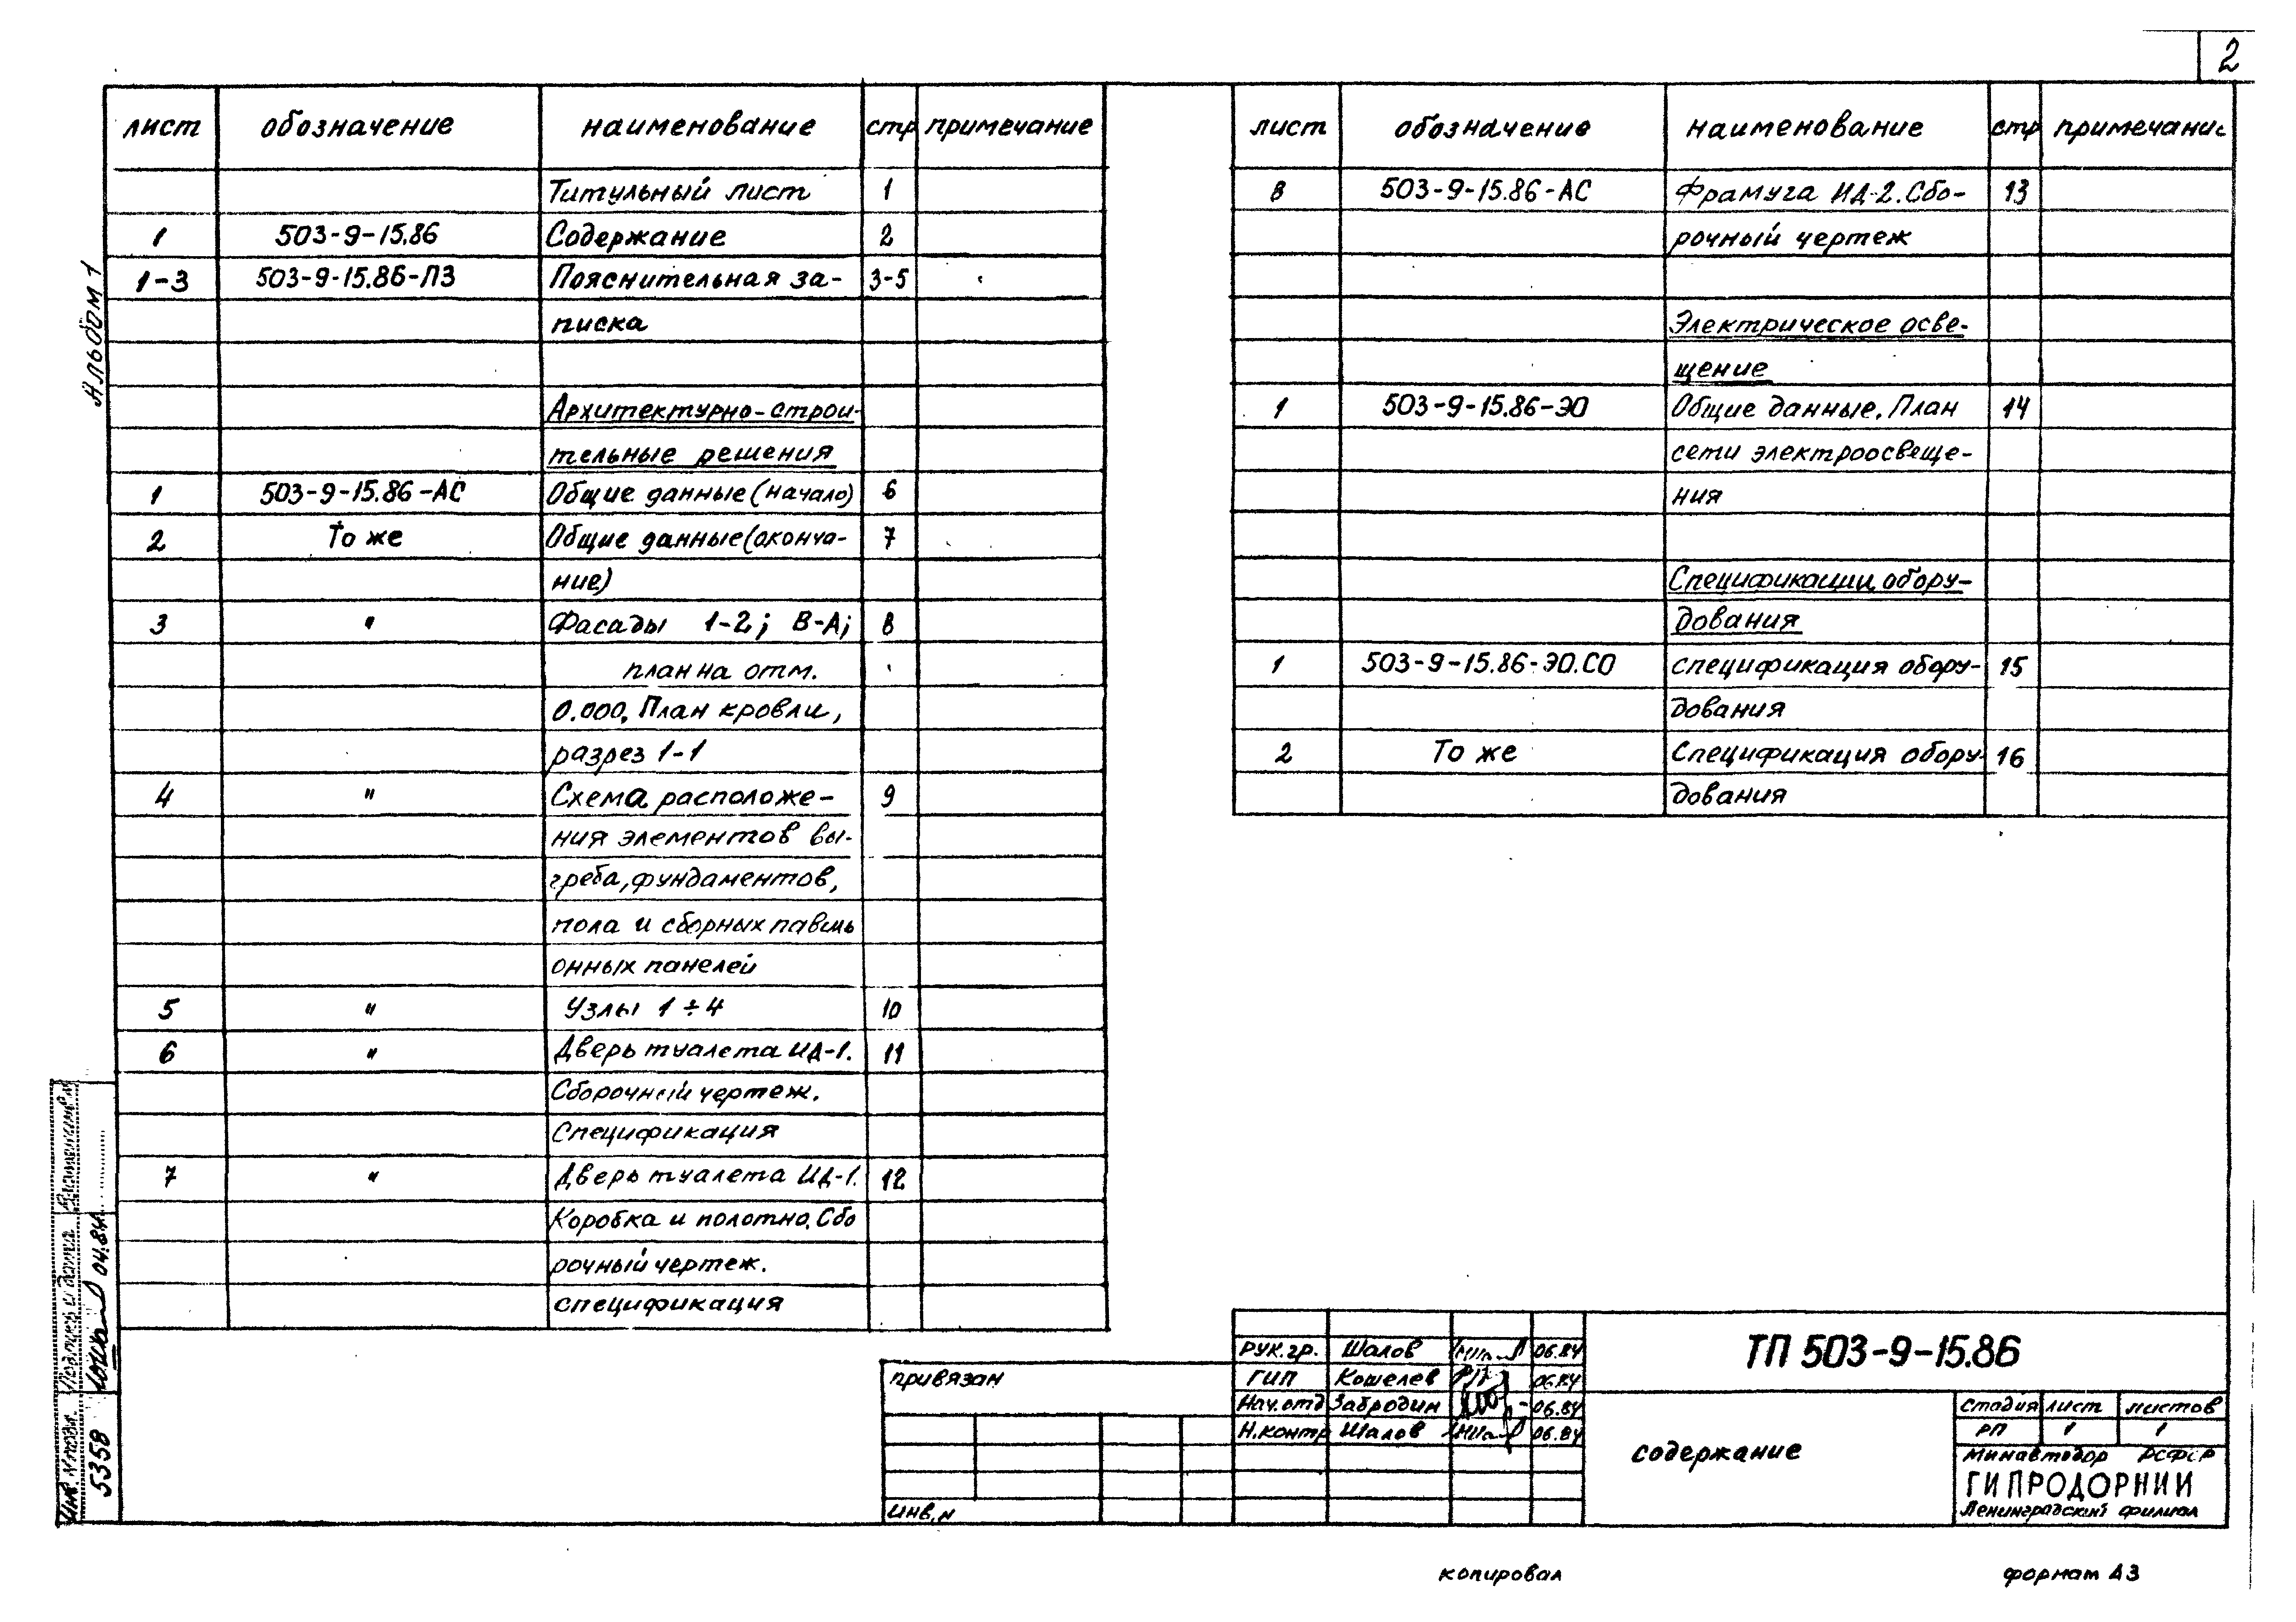 2
Альбом 1
лист обозначение наименование стр примечание
Титульный лист 1
1 503-9-15.86 Содержание 2
1-3 503-9-15.86-ПЗ Пояснительная за- 3-5
писка
Архитектурно-строи-
тельные решения
1 503-9-15.86-АС Общие данные (начало) 6
2 То же Общие данные (оконча- 7
ние)
3 " Фасады 1-2; В-А; 8
план на отм.
0.000. План кровли,
разрез 1-1
4 " Схема расположе- 9
ния элементов вы-
греба, фундаментов,
пола и сборных павиль
онных панелей
5 " Узлы 1÷4 10
6 " Дверь туалета ИД-1. 11
Сборочный чертеж.
Спецификация
7 " Дверь туалета ИД-1. 12
Коробка и полотно. Сбо
рочный чертеж.
спецификация
лист обозначение наименование стр примечание
8 503-9-15.86-АС Фрамуга ИД-2. Сбо- 13
рочный чертеж
Электрическое осве-
щение
1 503-9-15.86-ЭО Общие данные. План 14
сети электроосвеще-
ния
Спецификации обору-
дования
1 503-9-15.86-ЭО.СО спецификация обору- 15
дования
2 То же Спецификация обору- 16
дования
Инв. N подл. Подпись и дата Взам. инв. N
5358 04.84
привязан
инв. N
рук. гр. Шалов 06.84
ГИП Кошелев 06.84
Нач. отд Забродин 06.84
Н. контр Шалов 06.84
ТП 503-9-15.86
содержание
стадия лист листов
РП 1 1
Минавтодор РСФСР
ГИПРОДОРНИИ
Ленинградский филиал
копировал формат А3